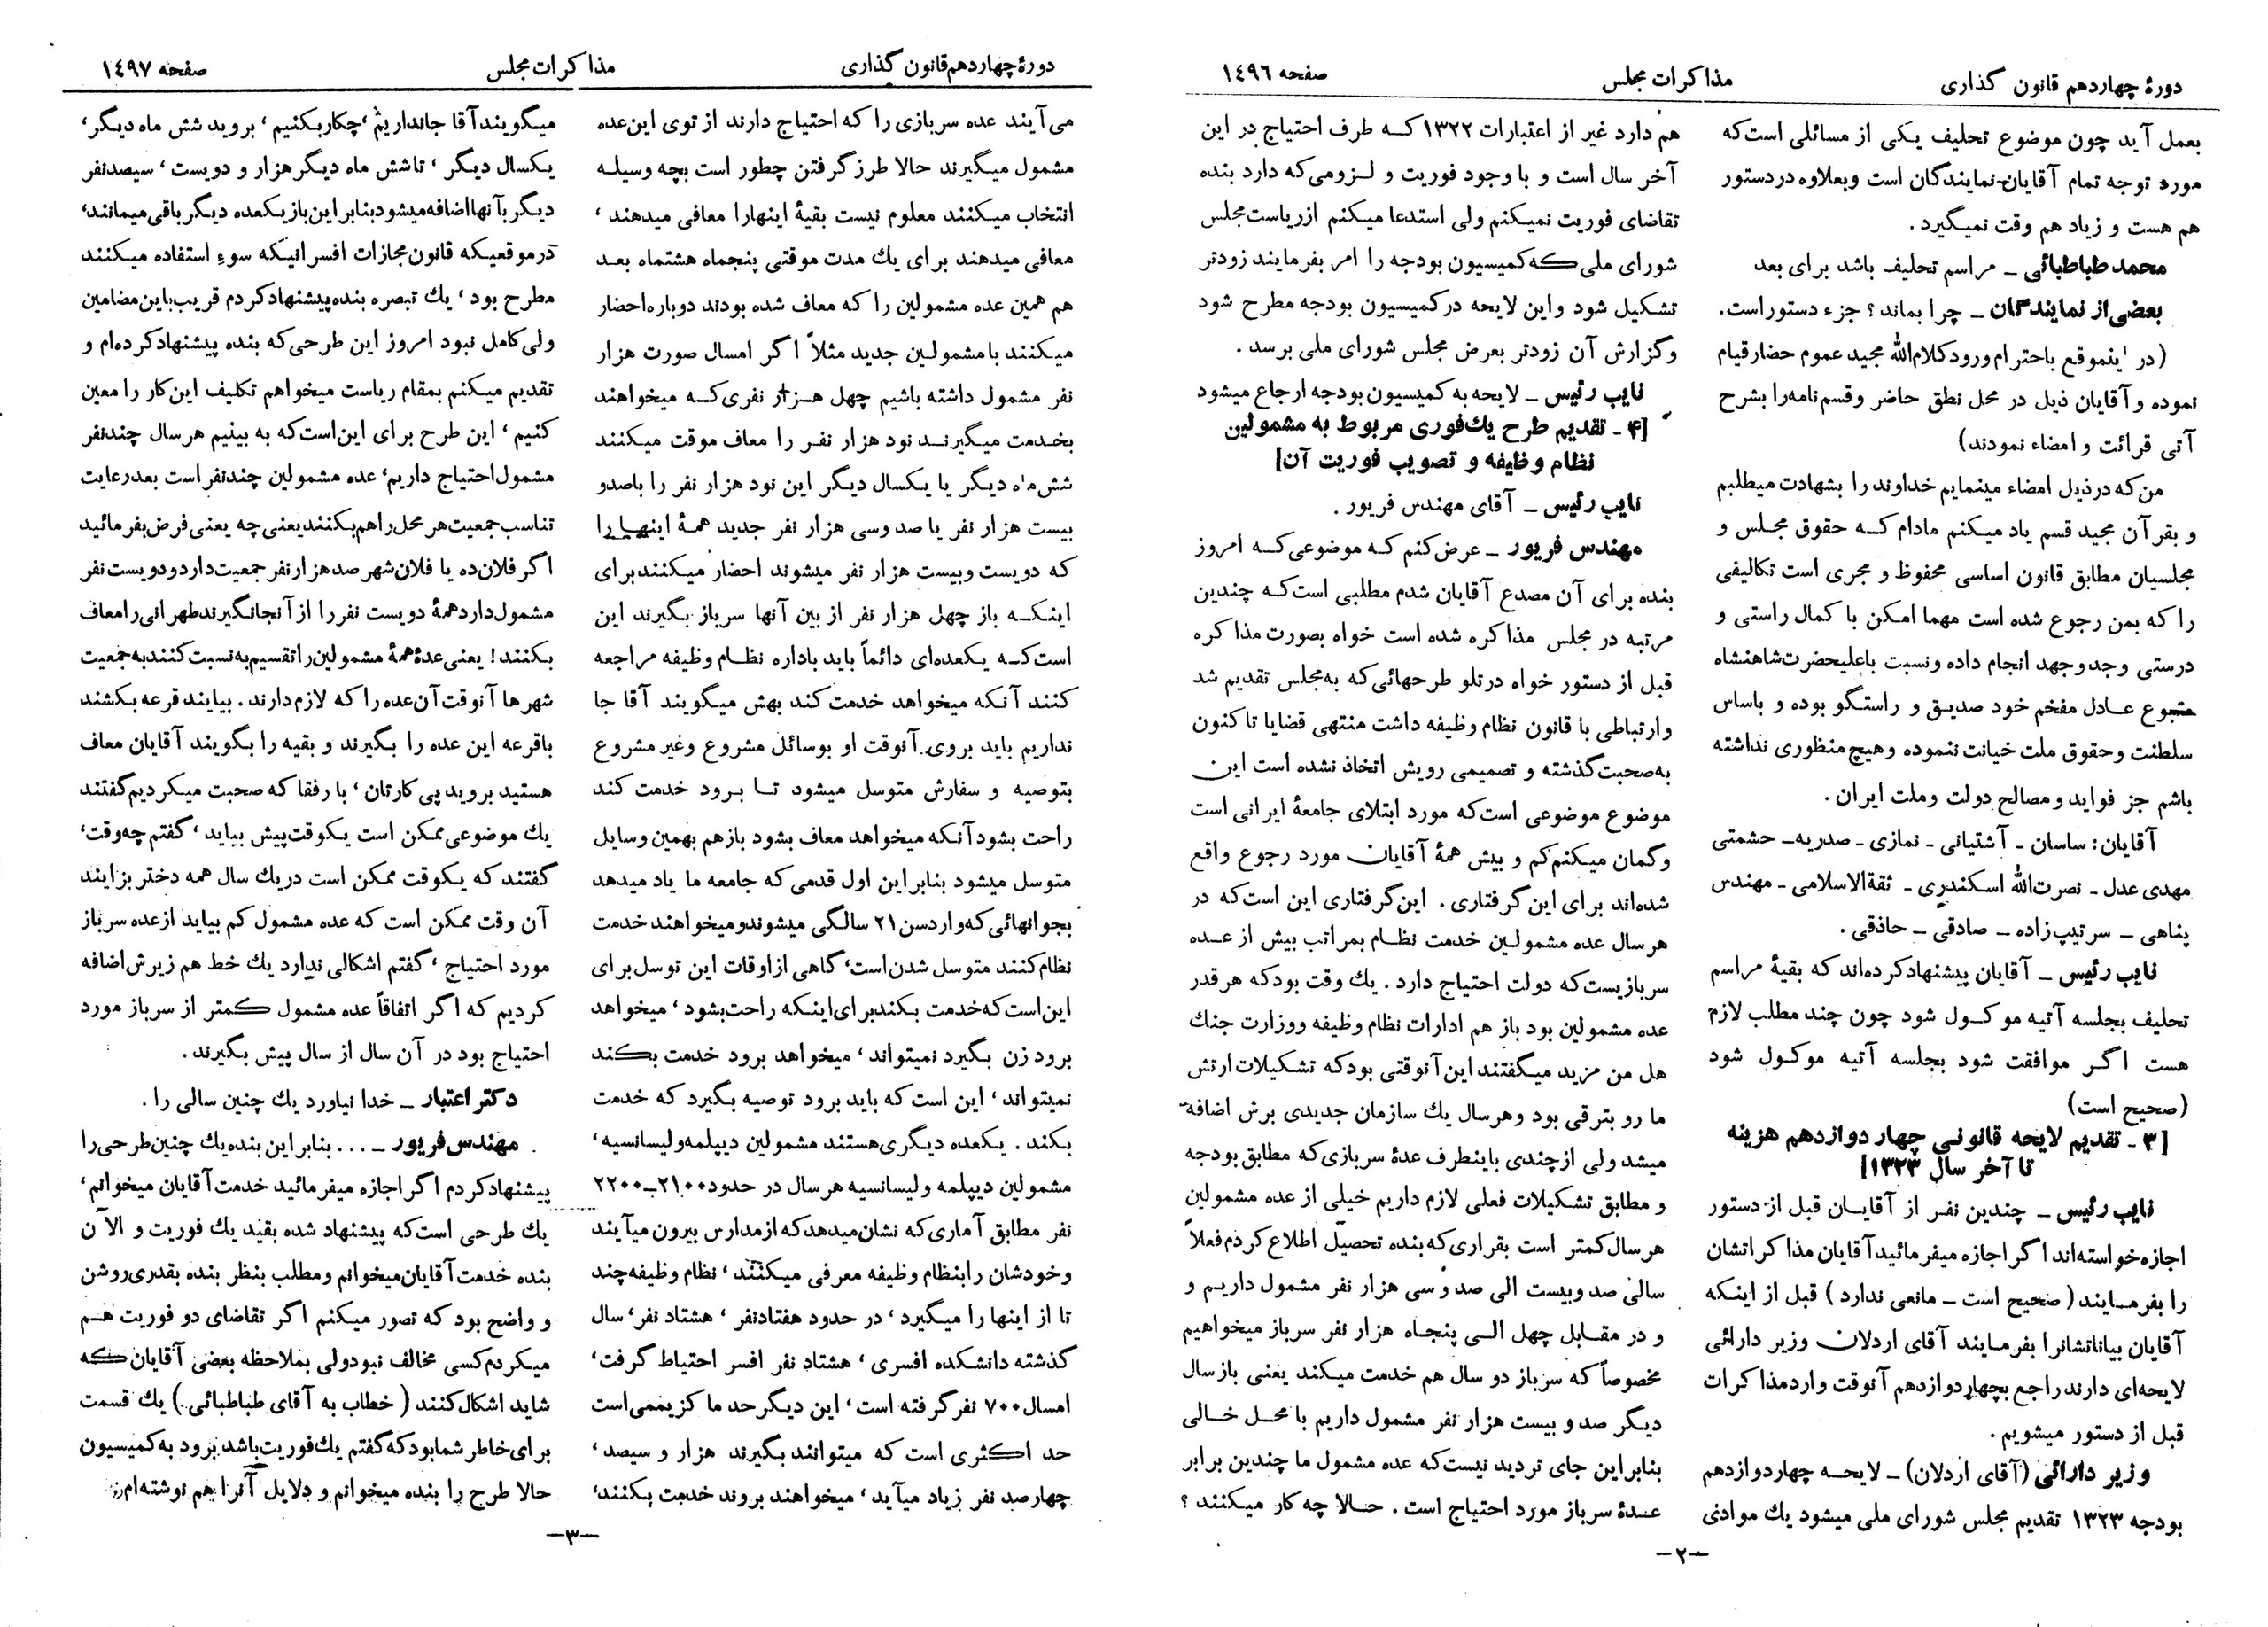 دورۀ چهاردهم قانون گذاری
مذاکرات مجلس
صفحه ۱٤۹٦
بعمل آید چون موضوع تحلیف یکی از مسائلی است که
مورد توجه تمام آقایان نمایندگان است وبعلاوه در دستور
هم هست و زیاد هم وقت نمیگیرد .
محمد طباطبائی ــ مراسم تحلیف باشد برای بعد
بعضی از نمایندگان ــ چرا بماند ؟ جزء دستور است.
(در اینموقع باحترام ورود کلام‌الله مجید عموم حضار قیام
نموده و آقایان ذیل در محل نطق حاضر وقسم نامه را بشرح
آتی قرائت و امضاء نمودند)
من که درذیل امضاء مینمایم خداوند را بشهادت میطلبم
و بقرآن مجید قسم یاد میکنم مادام کـه حقوق مجـلس و
مجلسیان مطابق قانون اساسی محفوظ و مجری است تکالیفی
را که بمن رجوع شده است مهما امکن با کمال راستی و
درستی وجدوجهد انجام داده ونسبت باعلیحضرت شاهنشاه
متبوع عـادل مفخم خود صدیـق و راستگو بوده و باساس
سلطنت وحقوق ملت خیانت ننموده وهیچ منظوری نداشته
باشم جز فواید ومصالح دولت وملت ایران .
آقایان: ساسان ـ آشتیانی ـ نمازی ـ صدریه ـ حشمتی
مهدی عدل ـ نصرت‌الله اسکندری ـ ثقةالاسلامی ـ مهندس
پناهی ــ سرتیپ‌زاده ــ صادقی ــ حاذقی .
نایب رئیس ــ آقایان پیشنهاد کرده‌اند که بقیۀ مراسم
تحلیف بجلسه آتیه موکـول شود چون چند مطلب لازم
هست اگـر موافقت شود بجلسه آتیه موکول شود
(صحیح است)
[۳ ـ تقدیم لایحه قانونی چهار دوازدهم هزینه
تا آخر سال ۱۳۲۳]
نایب رئیس ــ چندین نفـر از آقایـان قبل از دستور
اجازه خواسته‌اند اگر اجازه میفرمائید آقایان مذاکراتشان
را بفرمـایند ( صحیح است ــ مانعی ندارد ) قبل از اینکه
آقایان بیاناتشانرا بفرمـایند آقای اردلان وزیر دارائی
لایحه‌ای دارند راجع بچهار دوازدهم آنوقت وارد مذاکرات
قبل از دستور میشویم .
وزیر دارائی (آقای اردلان) ــ لایحـه چهاردوازدهم
بودجه ۱۳۲۳ تقدیم مجلس شورای ملی میشود یك موادی
هم دارد غیر از اعتبارات ۱۳۲۲ کـه طرف احتیاج در این
آخر سال است و با وجود فوریت و لـزومی که دارد بنده
تقاضای فوریت نمیکنم ولی استدعا میکنم از ریاست مجلس
شورای ملی کـه کمیسیون بودجه را امر بفرمایند زودتر
تشکیل شود واین لایحه در کمیسیون بودجه مطرح شود
وگزارش آن زودتر بعرض مجلس شورای ملی برسد .
نایب رئیس ــ لایحه به کمیسیون بودجه ارجاع میشود
[۴ ـ تقدیم طرح یك فوری مربوط به مشمولین
نظام وظیفه و تصویب فوریت آن]
نایب رئیس ــ آقای مهندس فریور .
مهندس فریور ــ عرض کنم کـه موضوعی کـه امروز
بنده برای آن مصدع آقایان شدم مطلبی است کـه چندین
مرتبه در مجلس مذاکره شده است خواه بصورت مذاکره
قبل از دستور خواه درتلو طرحهائی که به مجلس تقدیم شد
وارتباطی با قانون نظام وظیفه داشت منتهی قضایا تاکنون
به صحبت گذشته و تصمیمی رویش اتخاذ نشده است این
موضوع موضوعی است که مورد ابتلای جامعۀ ایرانی است
وگمان میکنم کم و بیش همۀ آقایان مورد رجوع واقع
شده‌اند برای این گرفتاری . این گرفتاری این است که در
هرسال عده مشمولین خدمت نظام بمراتب بیش از عـده
سربازیست که دولت احتیاج دارد . یك وقت بود که هر قدر
عده مشمولین بود باز هم ادارات نظام وظیفه ووزارت جنك
هل من مزید میگفتند این آنوقتی بود که تشکیلات ارتش
ما رو بترقی بود وهرسال یك سازمان جدیدی برش اضافه
میشد ولی از چندی باینطرف عدۀ سربازی که مطابق بودجه
و مطابق تشکیلات فعلی لازم داریم خیلی از عده مشمولین
هرسال کمتر است بقراری که بنده تحصیل اطلاع کردم فعلاً
سالی صد وبیست الی صد و سی هزار نفر مشمول داریم و
و در مقـابل چهل الـی پنجـاه هزار نفر سرباز میخواهیم
مخصوصاً که سرباز دو سال هم خدمت میکند یعنی باز سال
دیگر صد و بیست هزار نفر مشمول داریم با محـل خـالی
بنابراین جای تردید نیست که عده مشمول ما چندین برابر
عـدۀ سرباز مورد احتیاج است . حـالا چه کار میکنند ؟
—۲—
دورۀ چهاردهم قانون گذاری
مذاکرات مجلس
صفحه ۱٤۹۷
می‌آیند عده سربازی را که احتیاج دارند از توی این عده
مشمول میگیرند حالا طرز گرفتن چطور است بچه وسیلـه
انتخاب میکنند معلوم نیست بقیۀ اینهارا معافی میدهند ،
معافی میدهند برای یك مدت موقتی پنجماه هشتماه بعـد
هم همین عده مشمولین را که معاف شده بودند دوباره احضار
میکنند با مشمولـین جدید مثلاً اگر امسال صورت هزار
نفر مشمول داشته باشیم چهل هـزار نفری کـه میخواهند
بخـدمت میگیرنـد نود هزار نفـر را معاف موقت میکنند
شش ماه دیگر یا یکسال دیگر این نود هزار نفر را باصدو
بیست هزار نفر یا صد وسی هزار نفر جدید همۀ اینهـا را
که دویست وبیست هزار نفر میشوند احضار میکنند برای
اینکـه باز چهل هزار نفر از بین آنها سرباز بگیرند این
است کـه یکعده‌ای دائماً باید باداره نظـام وظیفه مراجعه
کنند آنکه میخواهد خدمت کند بهش میگویند آقا جا
نداریم باید بروی. آنوقت او بوسائل مشروع وغیر مشروع
بتوصیه و سفارش متوسل میشود تـا بـرود خدمت کند
راحت بشود آنکه میخواهد معاف بشود بازهم بهمین وسایل
متوسل میشود بنابراین اول قدمی که جامعه ما یاد میدهد
بجوانهائی که وارد سن ۲۱ سالگی میشوند و میخواهند خدمت
نظام کنند متوسل شدن است، گاهی از اوقات این توسل برای
این است که خدمت بکند برای اینکه راحت بشود ، میخواهد
برود زن بگیرد نمیتواند ، میخواهد برود خدمت بکند
نمیتواند ، این است که باید برود توصیه بگیرد که خدمت
بکند . یکعده دیگری هستند مشمولین دیپلمه ولیسانسیه،
مشمولین دیپلمه ولیسانسیه هرسال در حدود ۲۱۰۰ــ۲۲۰۰
نفر مطابق آماری که نشان میدهد که از مدارس بیرون میآیند
وخودشان را بنظام وظیفه معرفی میکنند ، نظام وظیفه چند
تا از اینها را میگیرد ، در حدود هفتاد نفر ، هشتاد نفر، سال
گذشته دانشکده افسری ، هشتاد نفر افسر احتیاط گرفت،
امسال ۷۰۰ نفر گرفته است ، این دیگر حد ماکزیممی است
حد اکثری است که میتوانند بگیرند هزار و سیصد ،
چهارصد نفر زیاد میآید ، میخواهند بروند خدمت بکنند،
میگویند آقا جا نداریم ، چکار بکنیم ، بروید شش ماه دیگر،
یکسال دیگر ، تاشش ماه دیگر هزار و دویست ، سیصد نفر
دیگر بآنها اضافه میشود بنابراین باز یکعده دیگر باقی میمانند،
درموقعیکه قانون مجازات افسرانیکه سوء استفاده میکنند
مطرح بود ، یك تبصره بنده پیشنهاد کردم قریب باین مضامین
ولی کامل نبود امروز این طرحی که بنده پیشنهاد کرده‌ام و
تقدیم میکنم بمقام ریاست میخواهم تکلیف این کار را معین
کنیم ، این طرح برای این است که به بینیم هر سال چند نفر
مشمول احتیاج داریم، عده مشمولین چند نفر است بعد رعایت
تناسب جمعیت هر محل را هم بکنند یعنی چه یعنی فرض بفرمائید
اگر فلان ده یا فلان شهر صد هزار نفر جمعیت دارد و دویست نفر
مشمول دارد همۀ دویست نفر را از آنجا نگیرند طهرانی را معاف
بکنند ! یعنی عدۀ همۀ مشمولین را تقسیم به نسبت کنند به جمعیت
شهرها آنوقت آن عده را که لازم دارند . بیایند قرعه بکشند
باقرعه این عده را بگیرند و بقیه را بگویند آقایان معاف
هستید بروید پی کارتان ، با رفقا که صحبت میکردیم گفتند
یك موضوعی ممکن است یکوقت پیش بیاید ، گفتم چه وقت،
گفتند که یکوقت ممکن است در یك سال همه دختر بزایند
آن وقت ممکن است که عده مشمول کم بیاید از عده سرباز
مورد احتیاج ، گفتم اشکالی ندارد یك خط هم زیرش اضافه
کردیم که اگر اتفاقاً عده مشمول کمتر از سرباز مورد
احتیاج بود در آن سال از سال پیش بگیرند .
دکتر اعتبار ــ خدا نیاورد یك چنین سالی را .
مهندس فریور ــ ... بنابراین بنده یك چنین طرحی را
پیشنهاد کردم اگر اجازه میفرمائید خدمت آقایان میخوانم،
یك طرحی است که پیشنهاد شده بقید یك فوریت و الآن
بنده خدمت آقایان میخوانم ومطلب بنظر بنده بقدری روشن
و واضح بود که تصور میکنم اگر تقاضای دو فوریت هـم
میکردم کسی مخالف نبود ولی بملاحظه بعضی آقایان که
شاید اشکال کنند ( خطاب به آقای طباطبائی ) یك قسمت
برای خاطر شما بود که گفتم یك فوریت باشد برود به کمیسیون
حالا طرح را بنده میخوانم و دلایل آنرا هم نوشته‌ام:
—۳—